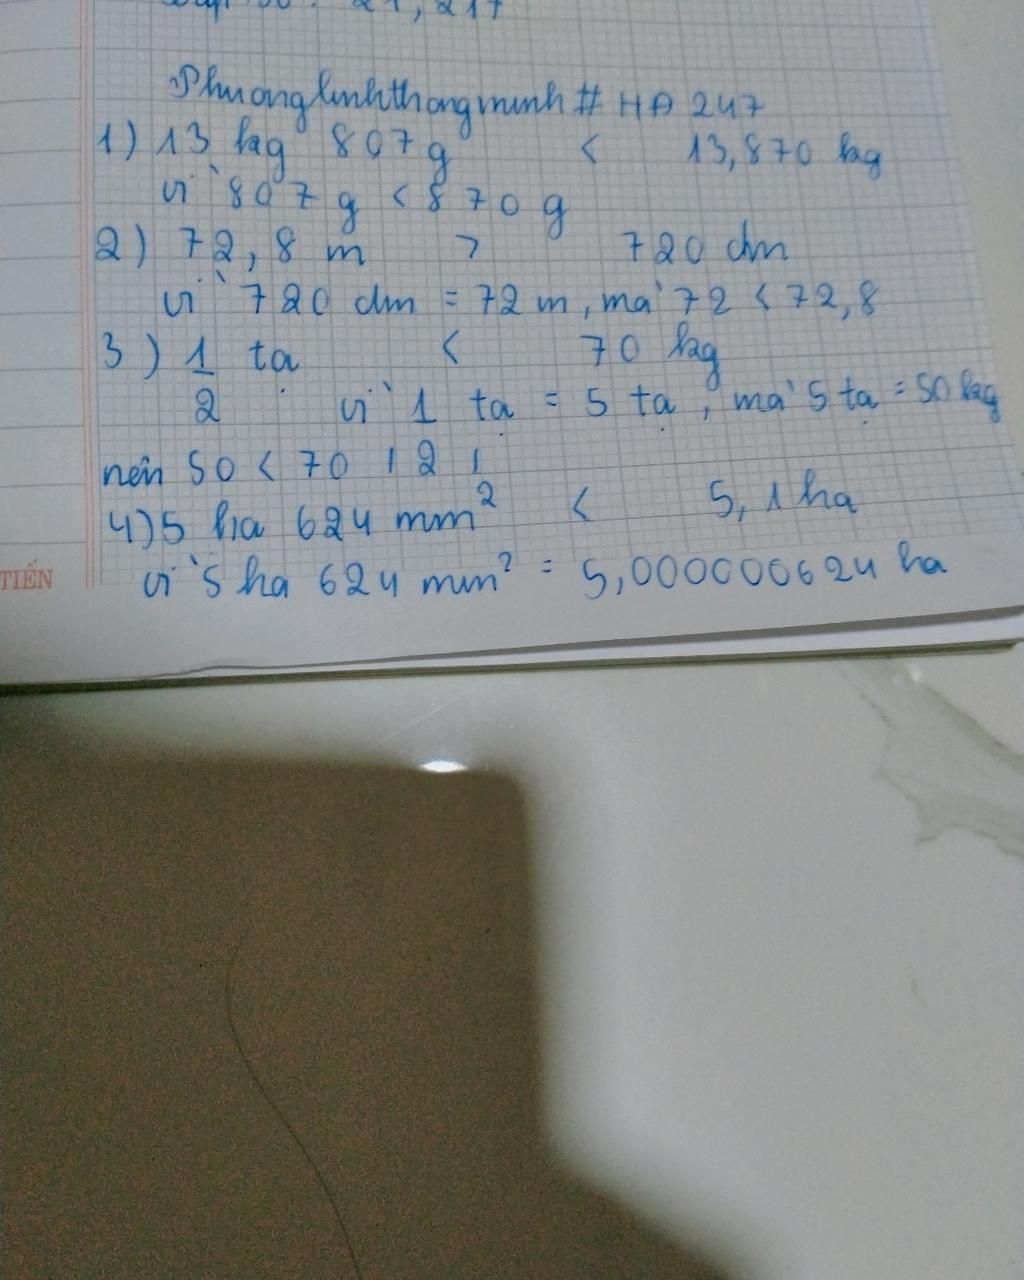 21, 217
Phuonglinhthongminh # HA 247
1) 13 kg 807g < 13,870 kg
vì 807 g < 870 g
2) 72,8 m > 720 dm
vì 720 dm = 72 m, mà 72 < 72,8
3) 1/2 tạ < 70 kg
vì 1 tạ = 5 tạ, mà 5 tạ = 50 kg
nên 50 < 70 | 2 |
4) 5 ha 624 mm² < 5,1 ha
vì 5 ha 624 mm² = 5,0000000624 ha
TIẾN